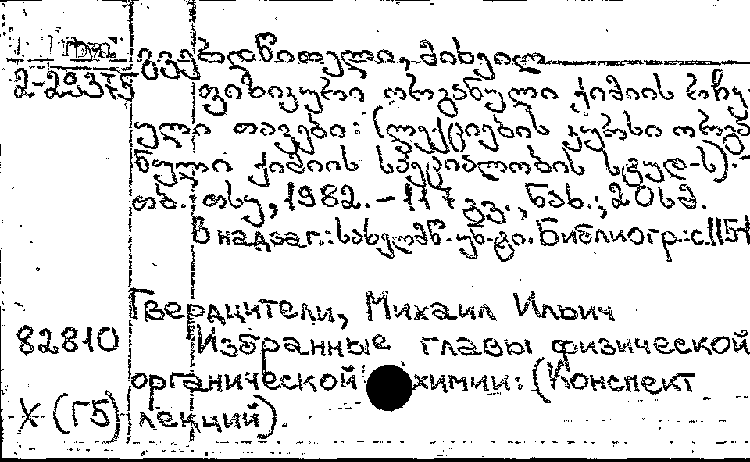 გვერდწითელი, მიხეილ
2-29375 ფიზიკური ორგანული ქიმიის რჩე-
ული თავები: (ლექციების კურსი ორგა-
ნული ქიმიის სპეციალობის სტუდ-ს).-
თბ.: თსუ, 1982.-117 გვ., ნახ.; 20 სმ.
В надзаг.: სახელმწ. უნ-ტი. Библиогр.: с.115-1
Гвердцители, Михаил Ильич
82810 Избранные главы физической
органической химии: (Конспект
X (Г5) лекций).